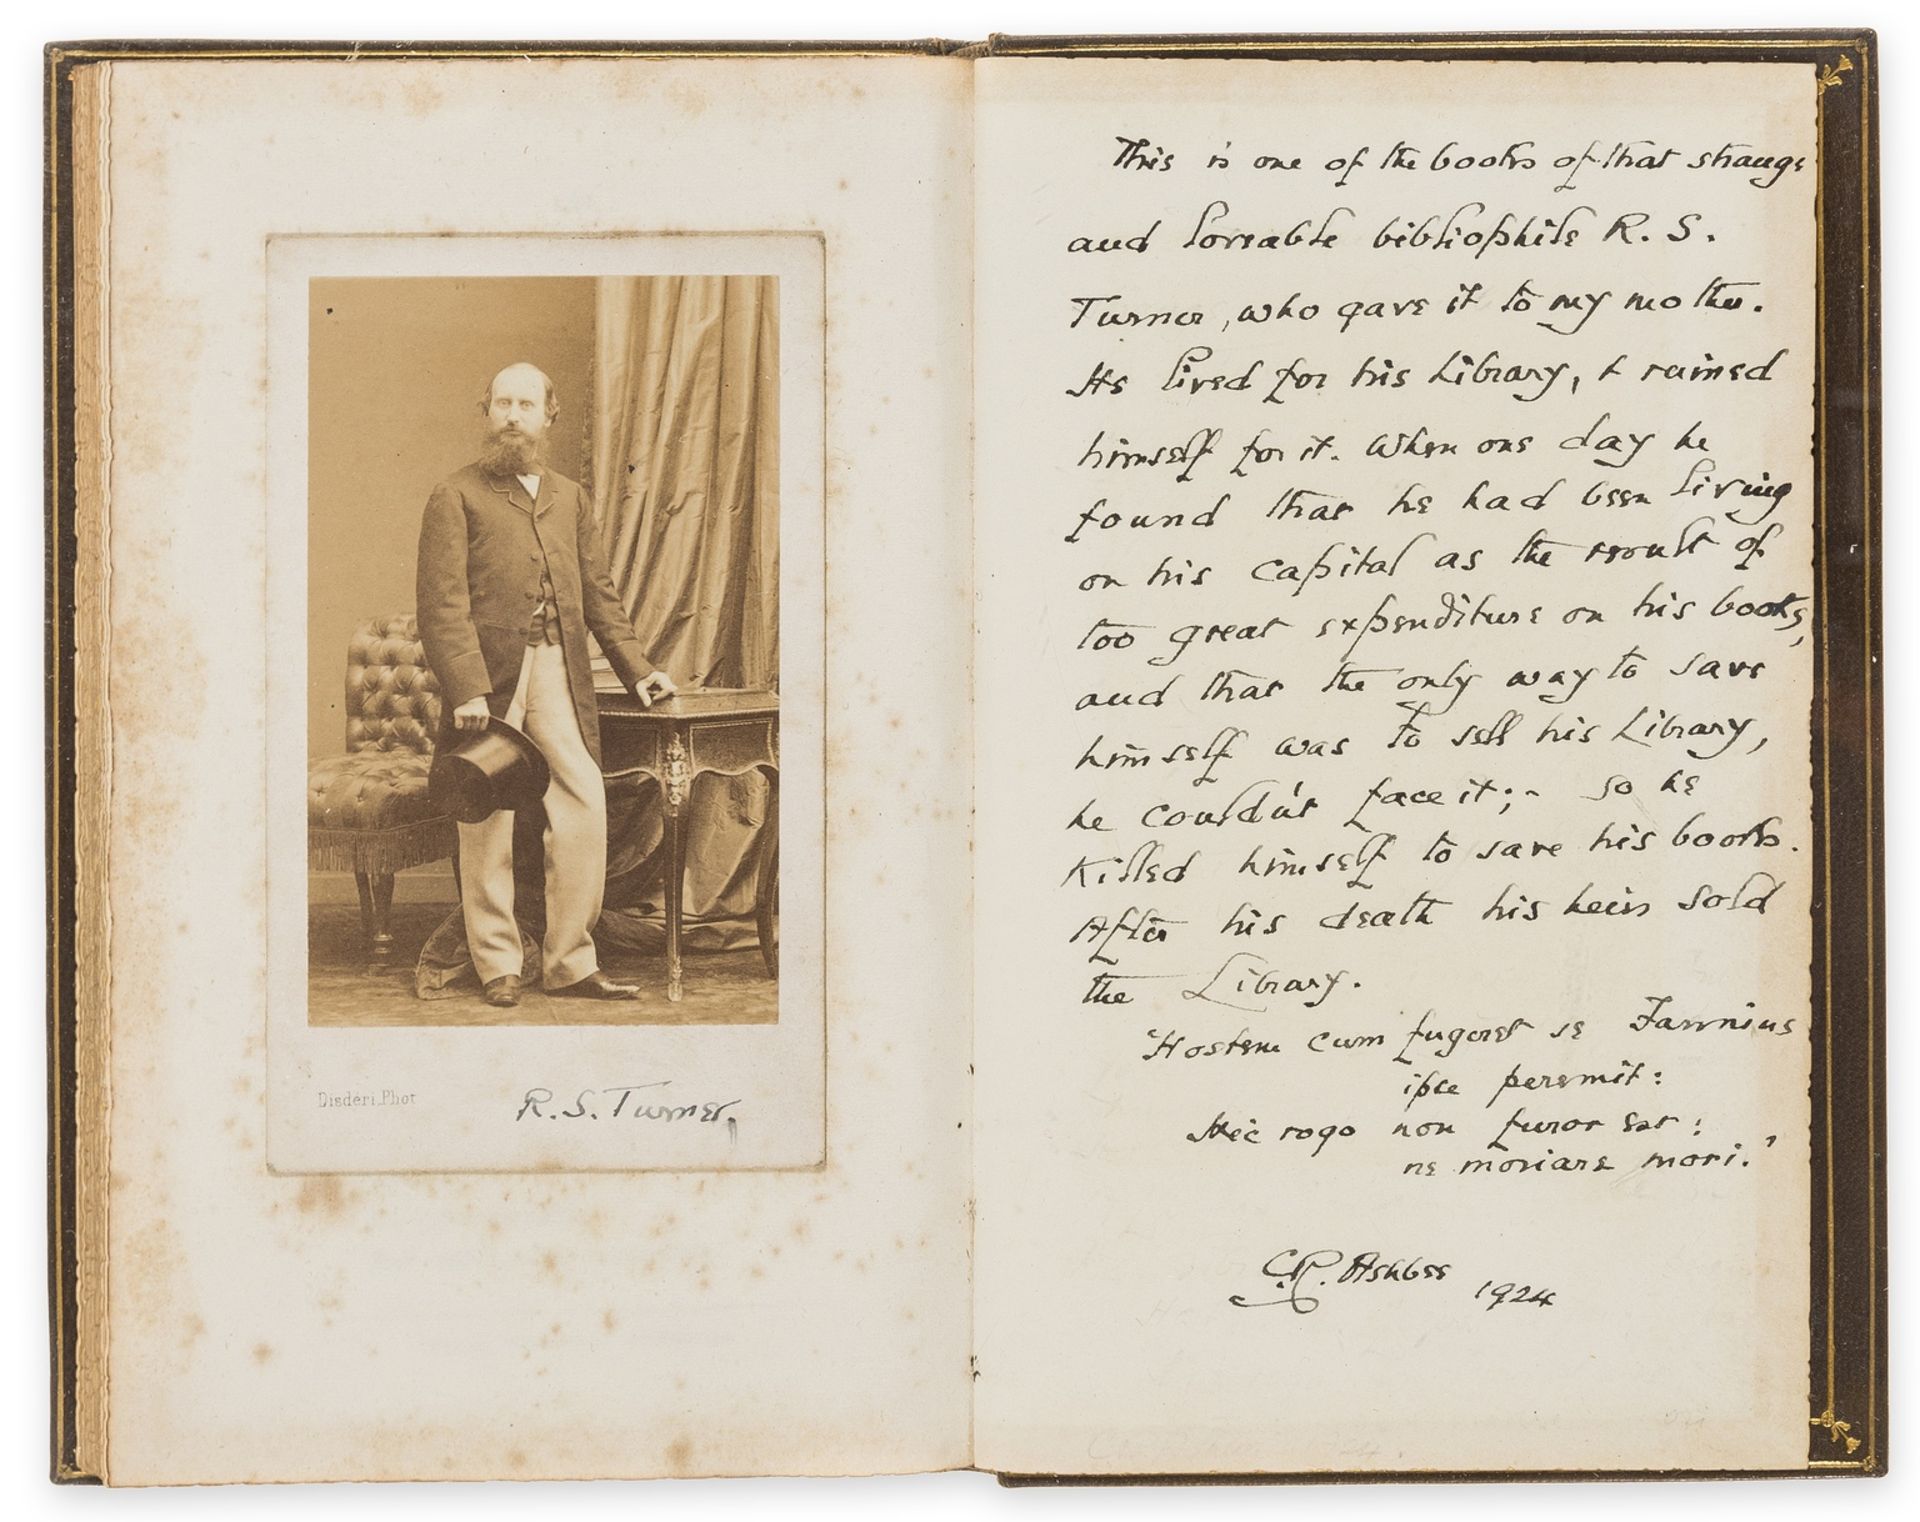 Disdéri Phot
R. S. Turner.
This is one of the books of that strange
and loveable bibliophile R. S.
Turner, who gave it to my mother.
He lived for his Library, & ruined
himself for it. When one day he
found that he had been living
on his capital as the result of
too great expenditure on his books,
and that the only way to save
himself was to sell his Library,
he could'nt face it; - so he
killed himself to save his books.
After his death his heirs sold
the Library.
'Hostem cum fugeret se Fannius
ipse peremit:
Hic rogo non furor est:
ne moriare mori.'
C.R. Ashbee
1924